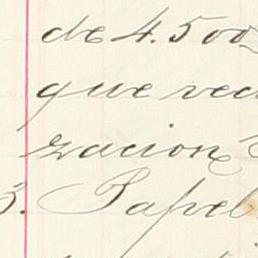 de 4.500
que red
zacion
3. Papel